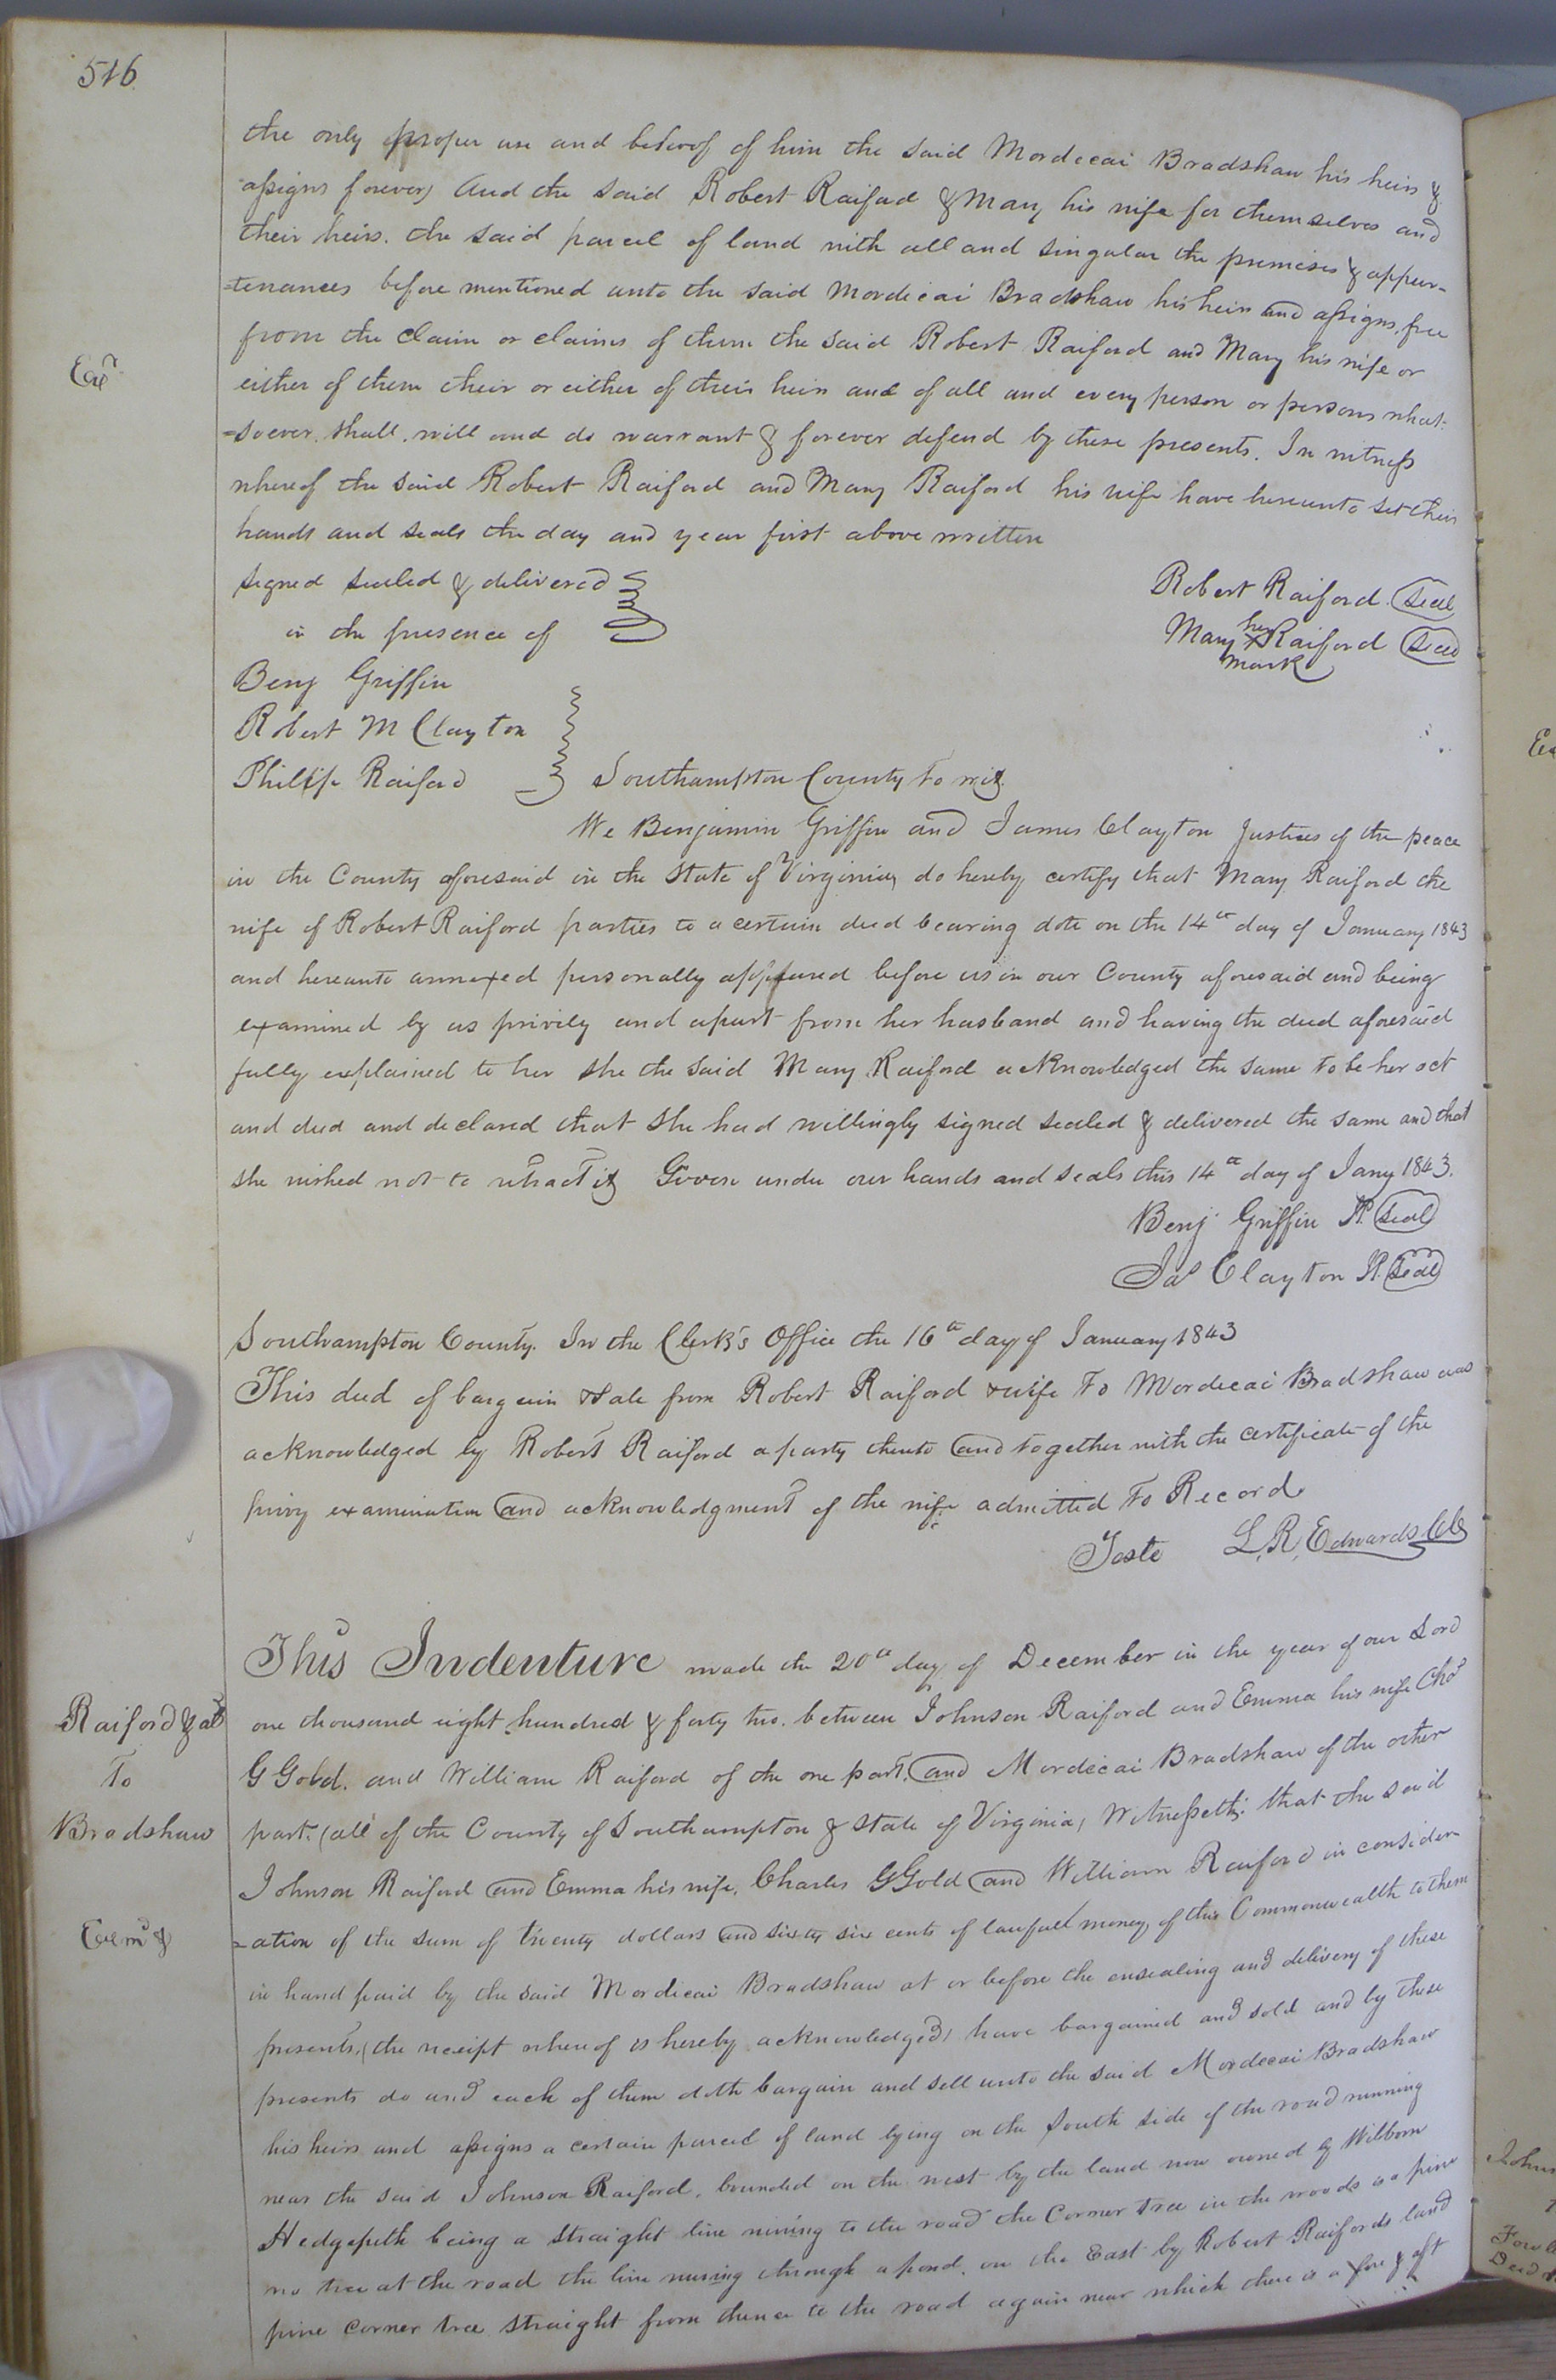 516
the only proper use and behoof of him the said Mordecai Bradshaw his heirs &
assigns forever) And the said Robert Raiford & Mary his wife for themselves and
their heirs. the said parcel of land with all and singular the premises & appur-
=tenances before mentioned unto the said Mordecai Bradshaw his heirs and assigns, free
from the claim or claims of them the said Robert Raiford and Mary his wife or
either of them their or either of their heirs and of all and every person or persons what-
=soever, shall, will and do warrant & forever defend by these presents. In witness
whereof the said Robert Raiford and Mary Raiford his wife have hereunto set their
hands and seals the day and year first above written
signed sealed & delivered
in the presence of
Robert Raiford. Seal
Mary her X mark Raiford Seal
Benj Griffin
Robert M Clayton
Philip Raiford
Southampton County to wit.
We Benjamin Griffin and James Clayton Justices of the peace
in the County aforesaid in the state of Virginia, do hereby certify that Mary Raiford the
wife of Robert Raiford parties to a certain deed bearing date on the 14th day of January 1843
and hereunto annexed personally appeared before us in our County aforesaid and being
examined by us privily and apart from her husband and having the deed aforesaid
fully explained to her she the said Mary Raiford acknowledged the same to be her act
and deed and declared that she had willingly signed sealed & delivered the same and that
she wished not to retract it Given under our hands and seals this 14th day of Jany 1843.
Benj Griffin JP. Seal
Jas Clayton JP. Seal
Southampton County. In the Clerk's Office the 16th day of January 1843
This deed of bargain & sale from Robert Raiford & wife to Mordecai Bradshaw was
acknowledged by Robert Raiford a party thereto and together with the certificate of the
privy examination and acknowledgment of the wife admitted to Record.
Teste L. R. Edwards
This Indenture made the 20th day of December in the year of our Lord
Raiford & al
To
Bradshaw
one thousand eight hundred & forty two. between Johnson Raiford and Emma his wife Chs
G Gold. and William Raiford of the one part, and Mordecai Bradshaw of the other
part. (all of the County of Southampton & State of Virginia) Witnesseth: that the said
Johnson Raiford and Emma his wife, Charles G Gold and William Raiford in consider
=ation of the sum of twenty dollars and sixty six cents of lawfull money of this Commonwealth to them
in hand paid by the said Mordicai Bradshaw at or before the ensealing and delivery of these
presents, (the receipt whereof is hereby acknowledged) have bargained and sold and by these
presents do and each of them doth bargain and sell unto the said Mordecai Bradshaw
his heirs and assigns a certain parcel of land lying on the South side of the road running
near the said Johnson Raiford, bounded on the west by the land now owned by Wilborn
Hedgepeth being a straight line runing to the road the Corner tree in the woods is a pine
no tree at the road the line runing through a pond, on the East by Robert Raifords land
pine corner tree straight from thence to the road again near which there is a fore & aft